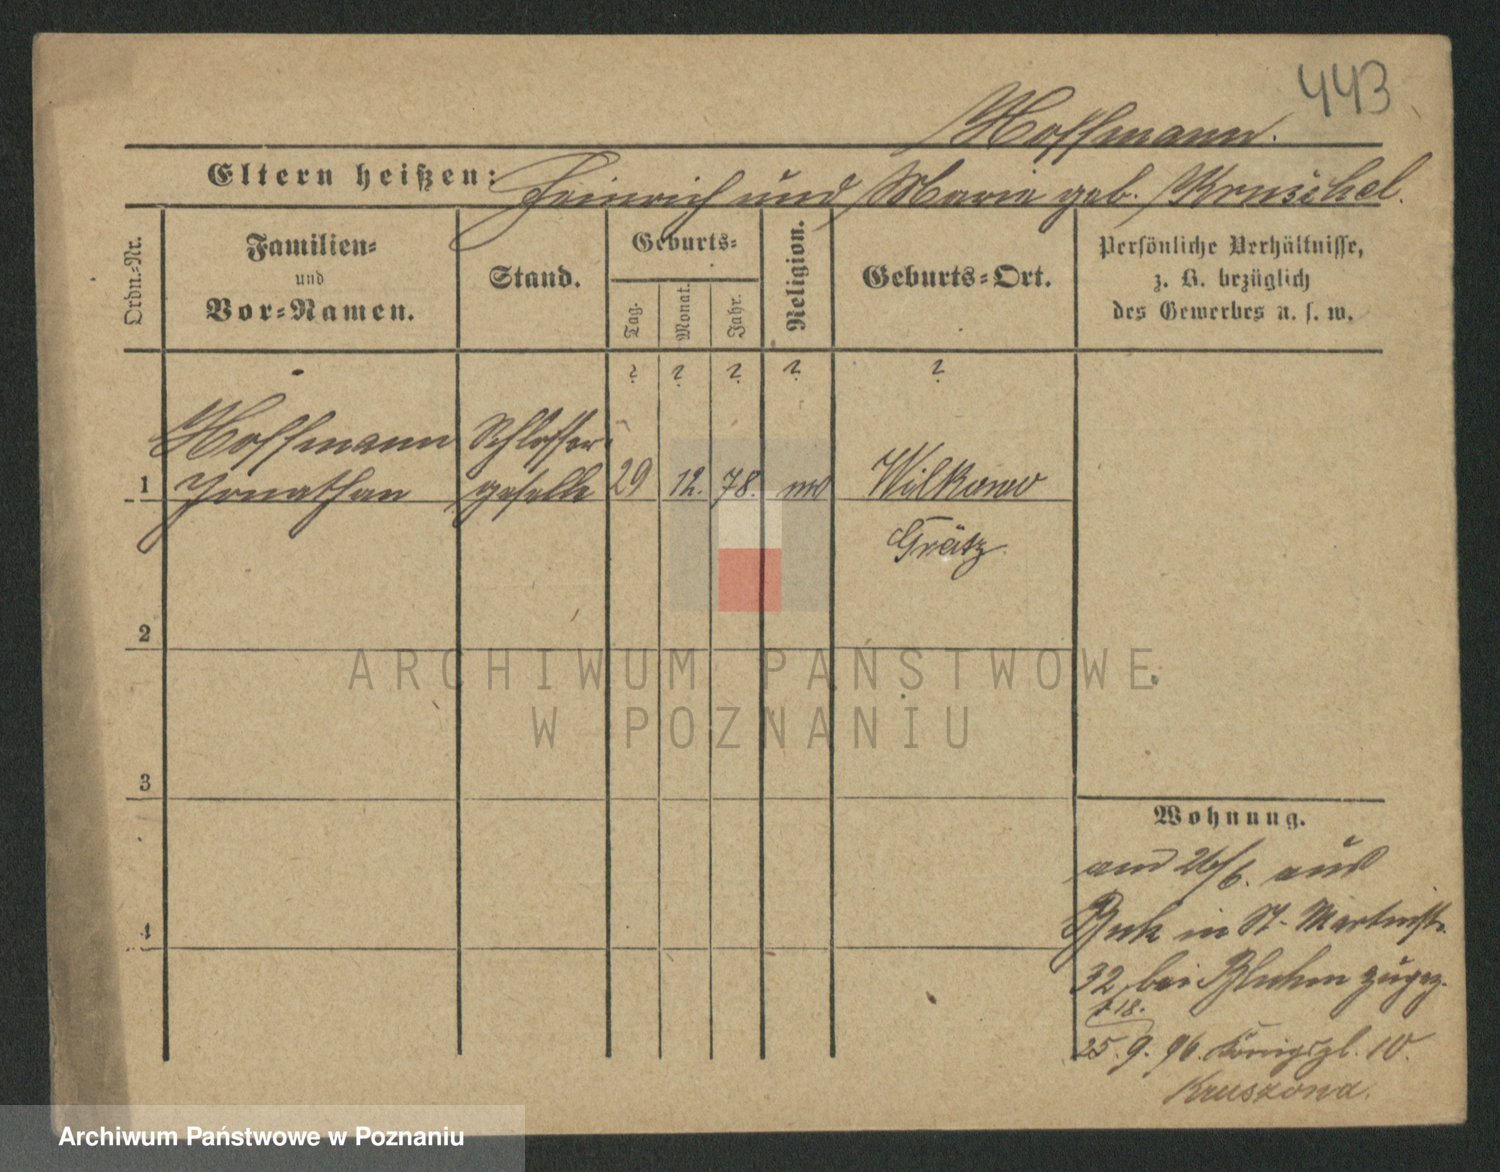 443
Hoffmann.
Eltern heißen: Heinrich und Marie geb. Kruschel.
Ordn.-Nr.
Familien-
und
Vor-Namen.
Stand.
Geburts-
Tag.
Monat.
Jahr.
Religion.
Geburts-Ort.
Persönliche Verhältnisse,
z. B. bezüglich
des Gewerbes u. s. w.
? ? ? ? ?
Hoffmann Schlosser-
1 Jonathan geselle 29 12. 78. Wilkowo
Grätz
2
3
4
Wohnung.
am 26/6. aus
Buk in St. Martinstr.
32 bei zugez.
f 18.
25. 9. 96. Königspl. 10.
Kruszona.
ARCHIWUM PAŃSTWOWE
W POZNANIU
Archiwum Państwowe w Poznaniu